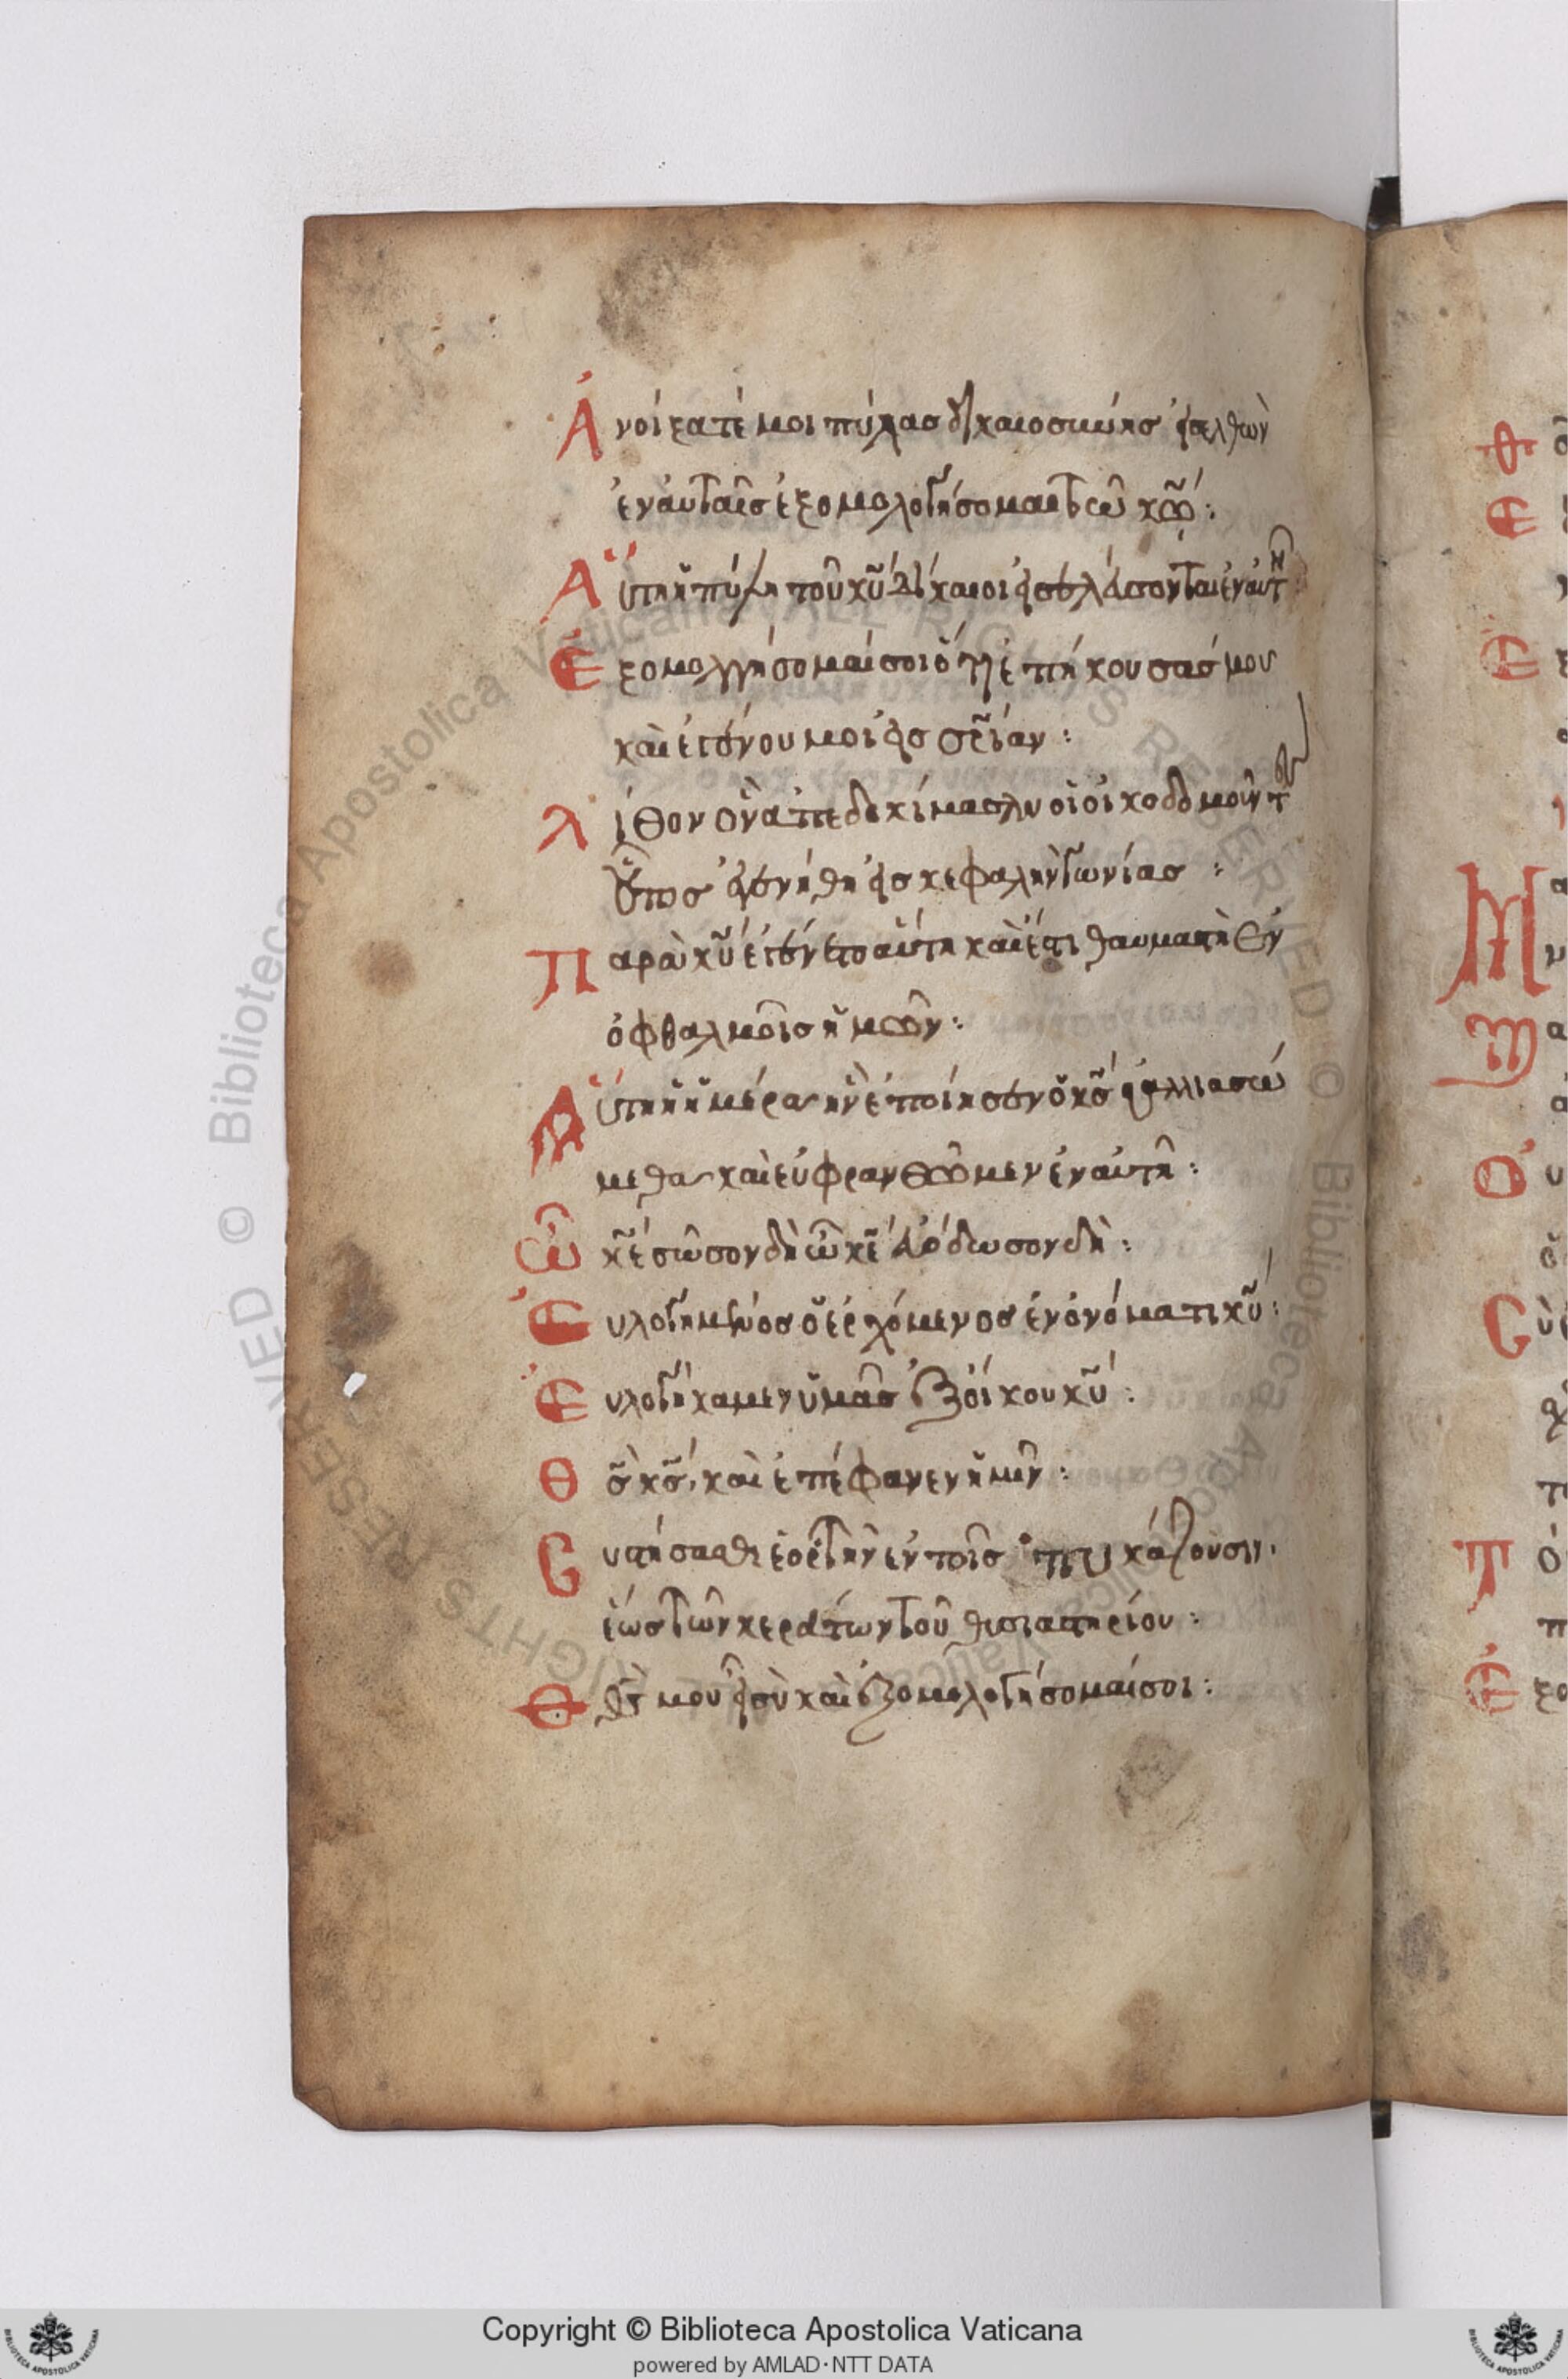 Ἀνοίξατέ μοι πύλας δικαιοσύνης εἰσελθὼν
ἐν αὐταῖς ἐξομολογήσομαι τῶ κῶ:
Αὕτη ἡ πύλη τοῦ κυ δίκαιοι εἰσελεύσονται ἐν αὐτῆ
Ἐξομολογήσομαί σοι ὅτι ἐπήκουσάς μου
καὶ ἐγένου μοι εἰς σρίαν:
λίθον ὃν ἀπεδοκίμασαν οἱ οἰκοδομοῦντ
οὗτος ἐγενήθη εἰς κεφαλὴν γωνίας:
παρὰ κυ ἐγένετο αὕτη καὶ ἔστι θαυμαστὴ ἐν
ὀφθαλμοῖς ἡμῶν:
Αὕτη ἡ ἡμέρα ἣν ἐποίησεν ὁ κς ἀγαλλιασώ
μεθα καὶ εὐφρανθῶμεν ἐν αὐτῆ:
Ὦ κε σῶσον δὴ ὦ κε εὐόδωσον δὴ:
Εὐλογημένος ὁ ἐρχόμενος ἐν ὀνόματι κυ:
Εὐλογήκαμεν ὑμᾶς ἐξ οἴκου κυ:
Θς κς, καὶ ἐπέφανεν ἡμῖν:
Συστήσασθε ἑορτὴν ἐν τοῖς πυκάζουσιν
ἑως τῶν κεράτων τοῦ θυσιαστηρίου:
Θς μου εἶ σὺ καὶ ἐξομολογήσομαί σοι:
Copyright © Biblioteca Apostolica Vaticana
powered by AMLAD·NTT DATA